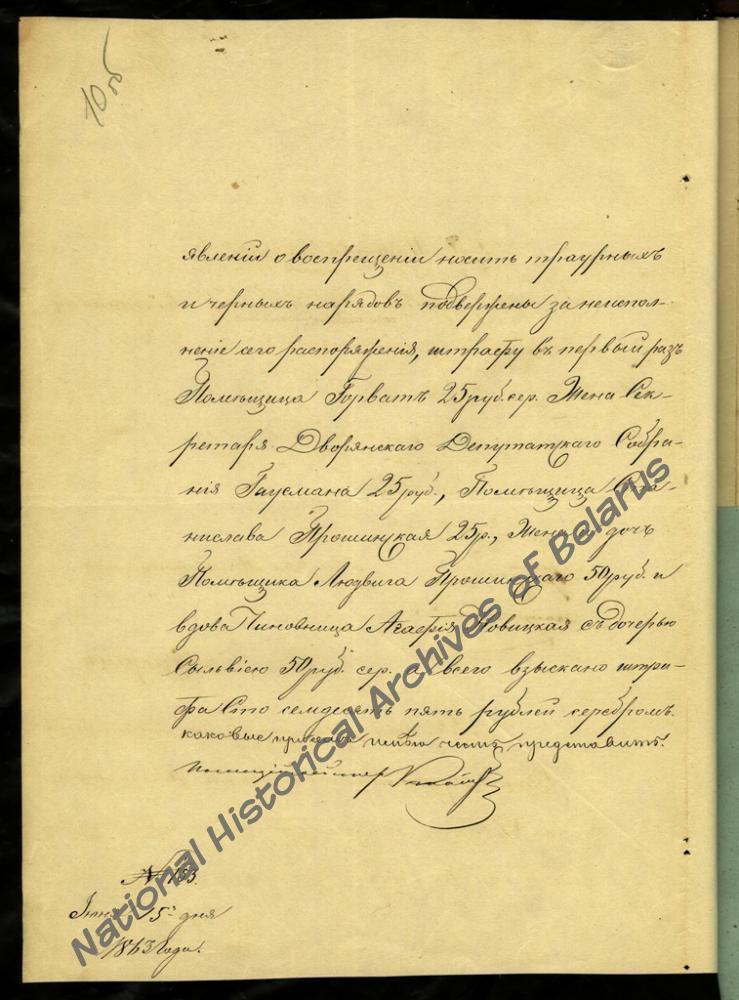 10 об
явленій о воспрещеніи носить траурныхъ
и черныхъ нарядовъ подвержены за неиспол-
неніе сего распоряженія, штрафу въ первый разъ
Помѣщица Горватъ 25 руб. сер. Жена Сек-
ретаря Дворянскаго Депутатскаго Собра-
нія Гаусмана 25 руб., Помѣщица Ста-
нислава Прошицкая 25 р., Жена и дочь
Помѣщика Людвига Прошицкаго 50 руб. и
вдова Чиновница Агафія Новицкая съ дочерью
Сыльвіею 50 руб. сер. а всего взыскано штра-
фа Сто семдесятъ пять рублей серебромъ.
каковые при семъ имѣю честь представить.
Полиціймейстер
№
Іюня 15 дня
1863 Года.
National Historical Archives of Belarus